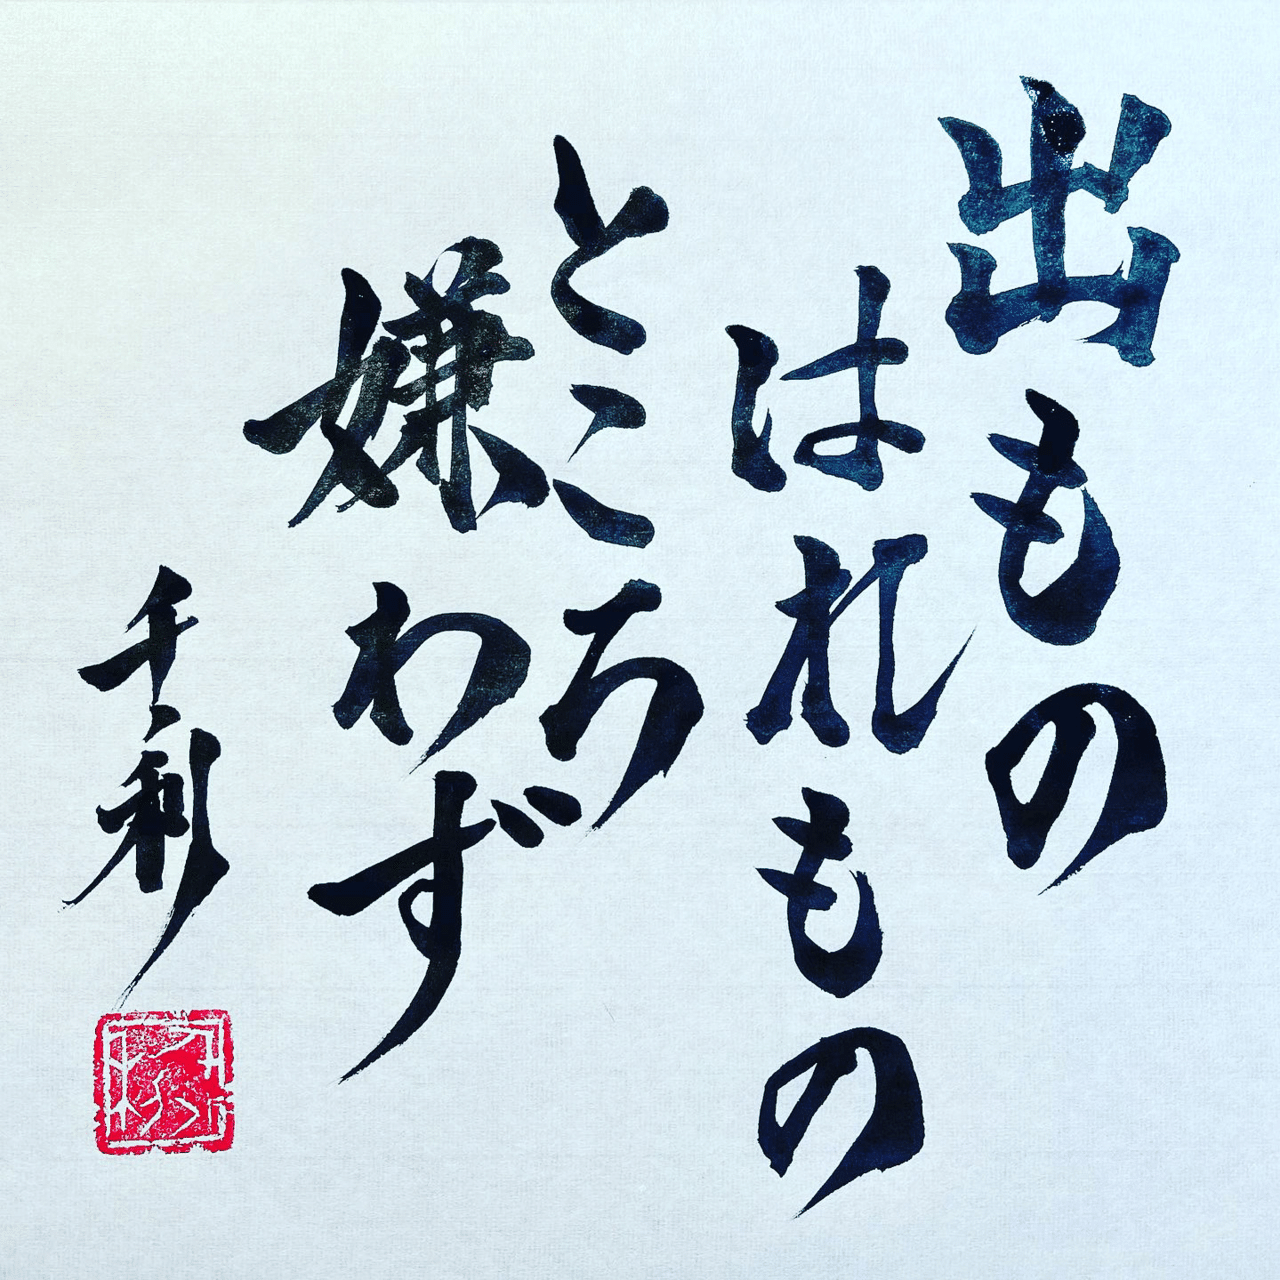 出もの
はれもの
ところ
嫌わず
千利